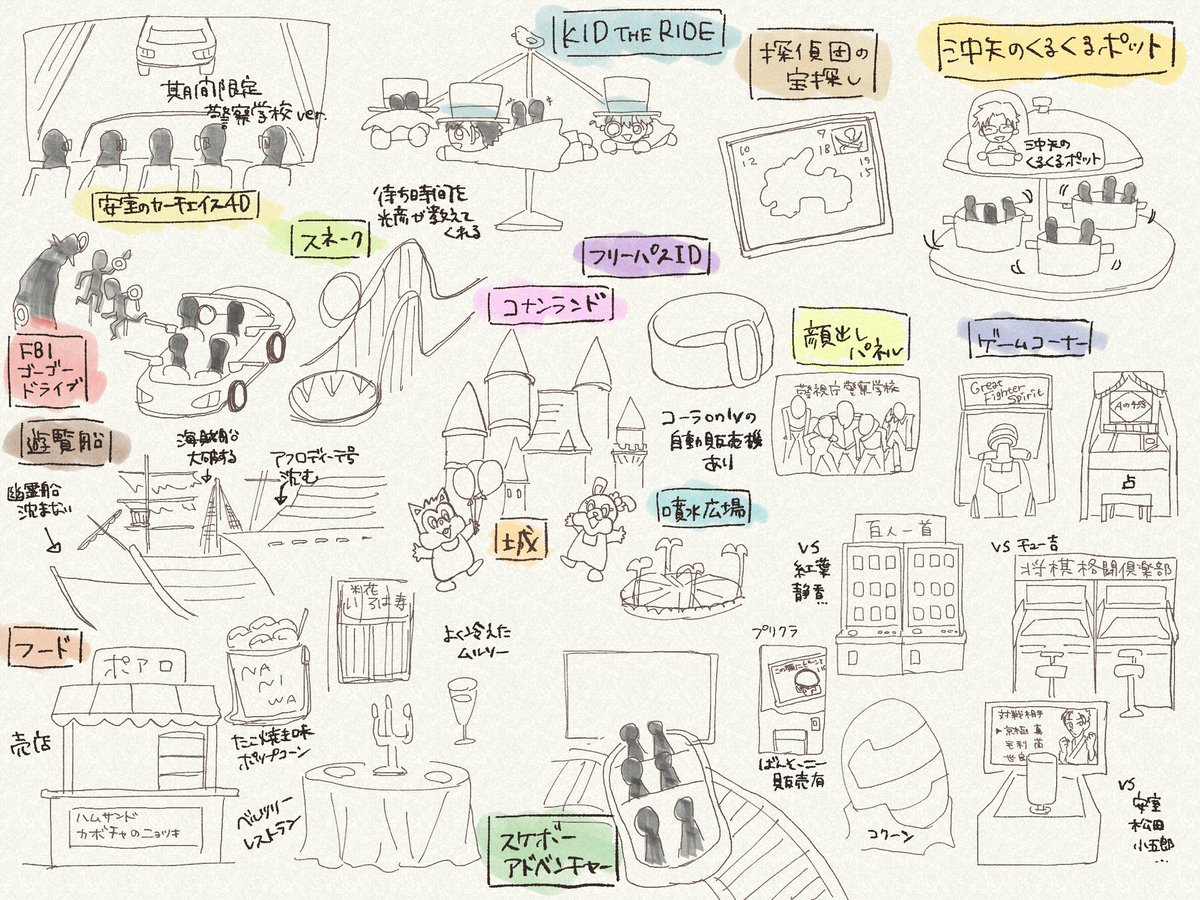 期間限定
警察学校ver.
安室のカーチェイス4D
KID THE RIDE
待ち時間を
光彦が教えて
くれる
探偵団の
宝探し
沖矢のくるくるポット
沖矢の
くるくるポット
スネーク
フリーパスID
コナンランド
FBI
ゴーゴー
ドライブ
顔出し
パネル
警視庁警察学校
ゲームコーナー
Great
Fighter
Spirit
占
遊覧船
海賊船
大破する
アフロディーテ号
沈む
幽霊船
沈まない
コーラonlyの
自動販売機
あり
城
噴水広場
VS
紅葉
静香
百人一首
VS チュー吉
将棋格闘倶楽部
フード
ポアロ
売店
ハムサンド
カボチャのニョッキ
NA
NI
WA
たこ焼き味
ポップコーン
いろは寿
よく冷えた
ムルソー
ベルツリー
レストラン
スケボー
アドベンチャー
プリクラ
ばんそーこー
販売有
コクーン
対戦相手
京極 真
毛利 蘭
世良
VS
安室
松田
小五郎
…